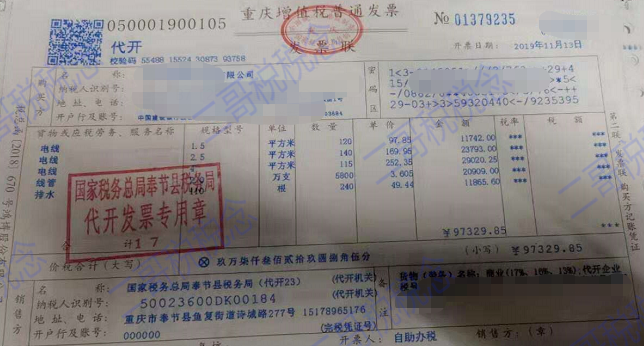 重庆增值税普通发票
050001900105
№ 01379235
代开
发票联
校验码 55488 15524 30873 93758
开票日期： 2019年11月13日
名 称： 限公司
纳税人识别号：
地 址、电 话：
开户行及账号：
密码区
29-03+>3>59320440</-9235395
货物或应税劳务、服务名称 规格型号 单位 数量 单价 金额 税率 税额
电线 1.5 平方米 120 97.85 11742.00 ***
电线 2.5 平方米 140 169.95 23793.00 *** ***
电线 平方米 115 252.35 29020.25 *** ***
线管 万支 5800 3.605 20909.00 *** ***
排水 根 240 49.44 11865.60 *** ***
国家税务总局奉节县税务局
代开发票专用章
17
合 计 ¥97329.85 ***
价税合计（大写） ⊗ 玖万柒仟叁佰贰拾玖圆捌角伍分 （小写） ¥97329.85
销售方
名 称： 国家税务总局奉节县税务局（代开23） （代开机关）
纳税人识别号： 50023600DK00184 （代开机关）
地 址、电 话： 重庆市奉节县鱼复街道诗城路277号 15178965176
开户行及账号： 000000 （完税凭证号）
备注
开票人： 自助办税
销售方：（章）
第二联：购买方记账凭证
二哥税税念